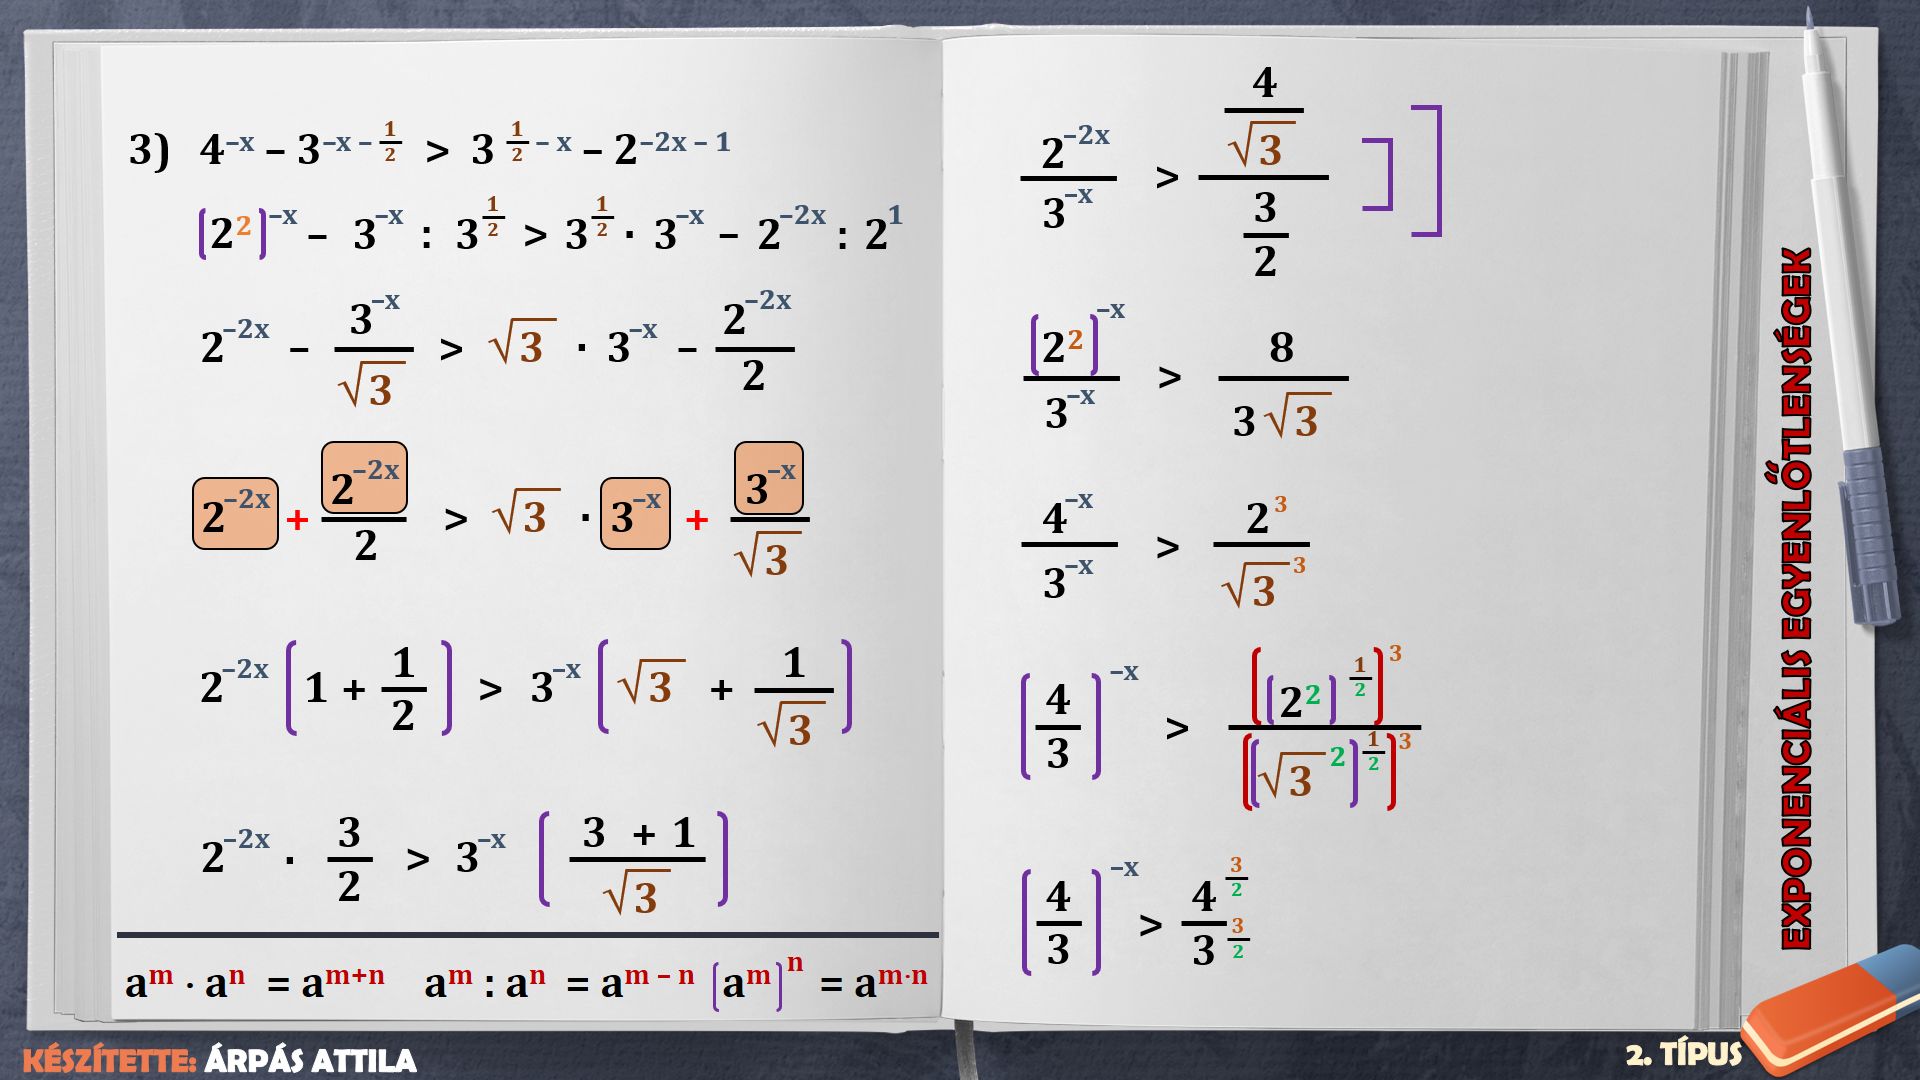 3) 4^(–x) – 3^(–x – 1/2) > 3^(1/2 – x) – 2^(–2x – 1)
(2^2)^(–x) – 3^(–x) : 3^(1/2) > 3^(1/2) · 3^(–x) – 2^(–2x) : 2^1
2^(–2x) – 3^(–x)/√3 > √3 · 3^(–x) – 2^(–2x)/2
2^(–2x) + 2^(–2x)/2 > √3 · 3^(–x) + 3^(–x)/√3
2^(–2x) (1 + 1/2) > 3^(–x) (√3 + 1/√3)
2^(–2x) · 3/2 > 3^(–x) ((3 + 1)/√3)
a^m · a^n = a^(m+n) a^m : a^n = a^(m – n) (a^m)^n = a^(m·n)
2^(–2x)/3^(–x) > (4/√3)/(3/2)
(2^2)^(–x)/3^(–x) > 8/(3√3)
4^(–x)/3^(–x) > 2^3/√3^3
(4/3)^(–x) > ((2^2)^(1/2))^3/((√3^2)^(1/2))^3
(4/3)^(–x) > 4^(3/2)/3^(3/2)
EXPONENCIÁLIS EGYENLŐTLENSÉGEK
KÉSZÍTETTE: ÁRPÁS ATTILA
2. TÍPUS